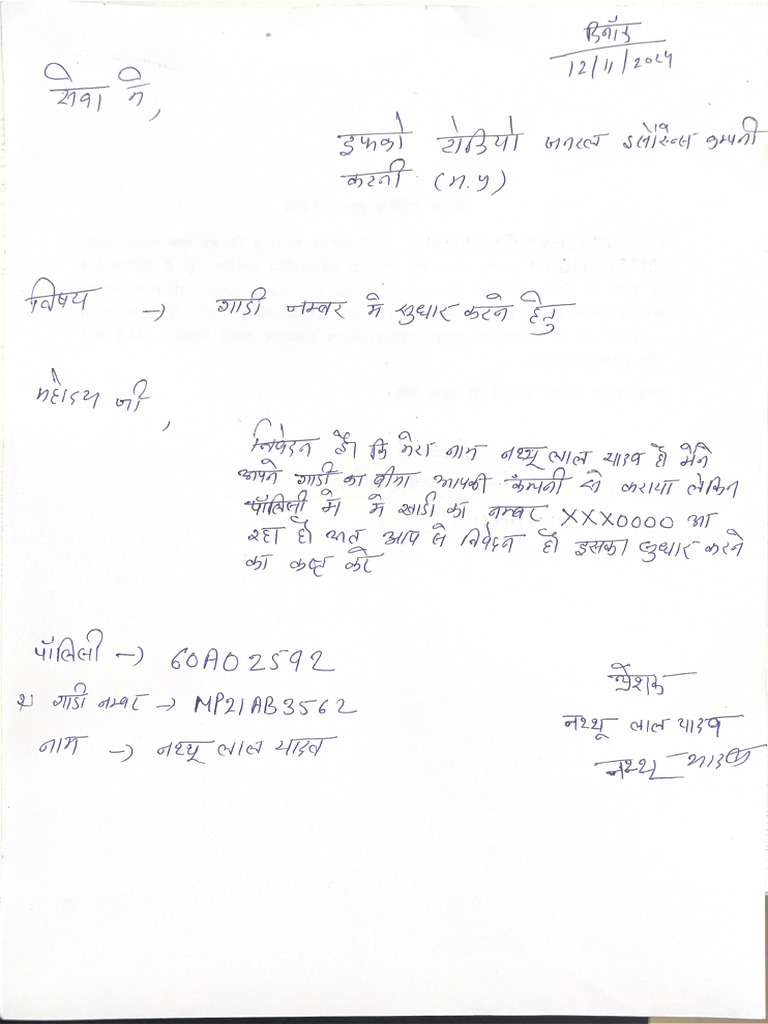 दिनाँक
12/11/2024
सेवा मे,
इफको टोकियो जनरल इंसोरेन्स कम्पनी
कटनी (म.प्र)
विषय → गाडी नम्बर मे सुधार करने हेतु
महोदय जी,
निवेदन है। कि मेरा नाम नथ्थू लाल यादव है मैने
अपने गाडी का बीमा आपकी कम्पनी से कराया लेकिन
पॉलिसी मे मे गाडी का नम्बर XXX0000 आ
रहा है अत आप से निवेदन है इसका सुधार करने
का कष्ट करे
पॉलिसी → 60A02592
गाडी नम्बर → MP21AB3562
नाम → नथ्थू लाल यादव
प्रेशक
नथ्थू लाल यादव
नथ्थू यादव